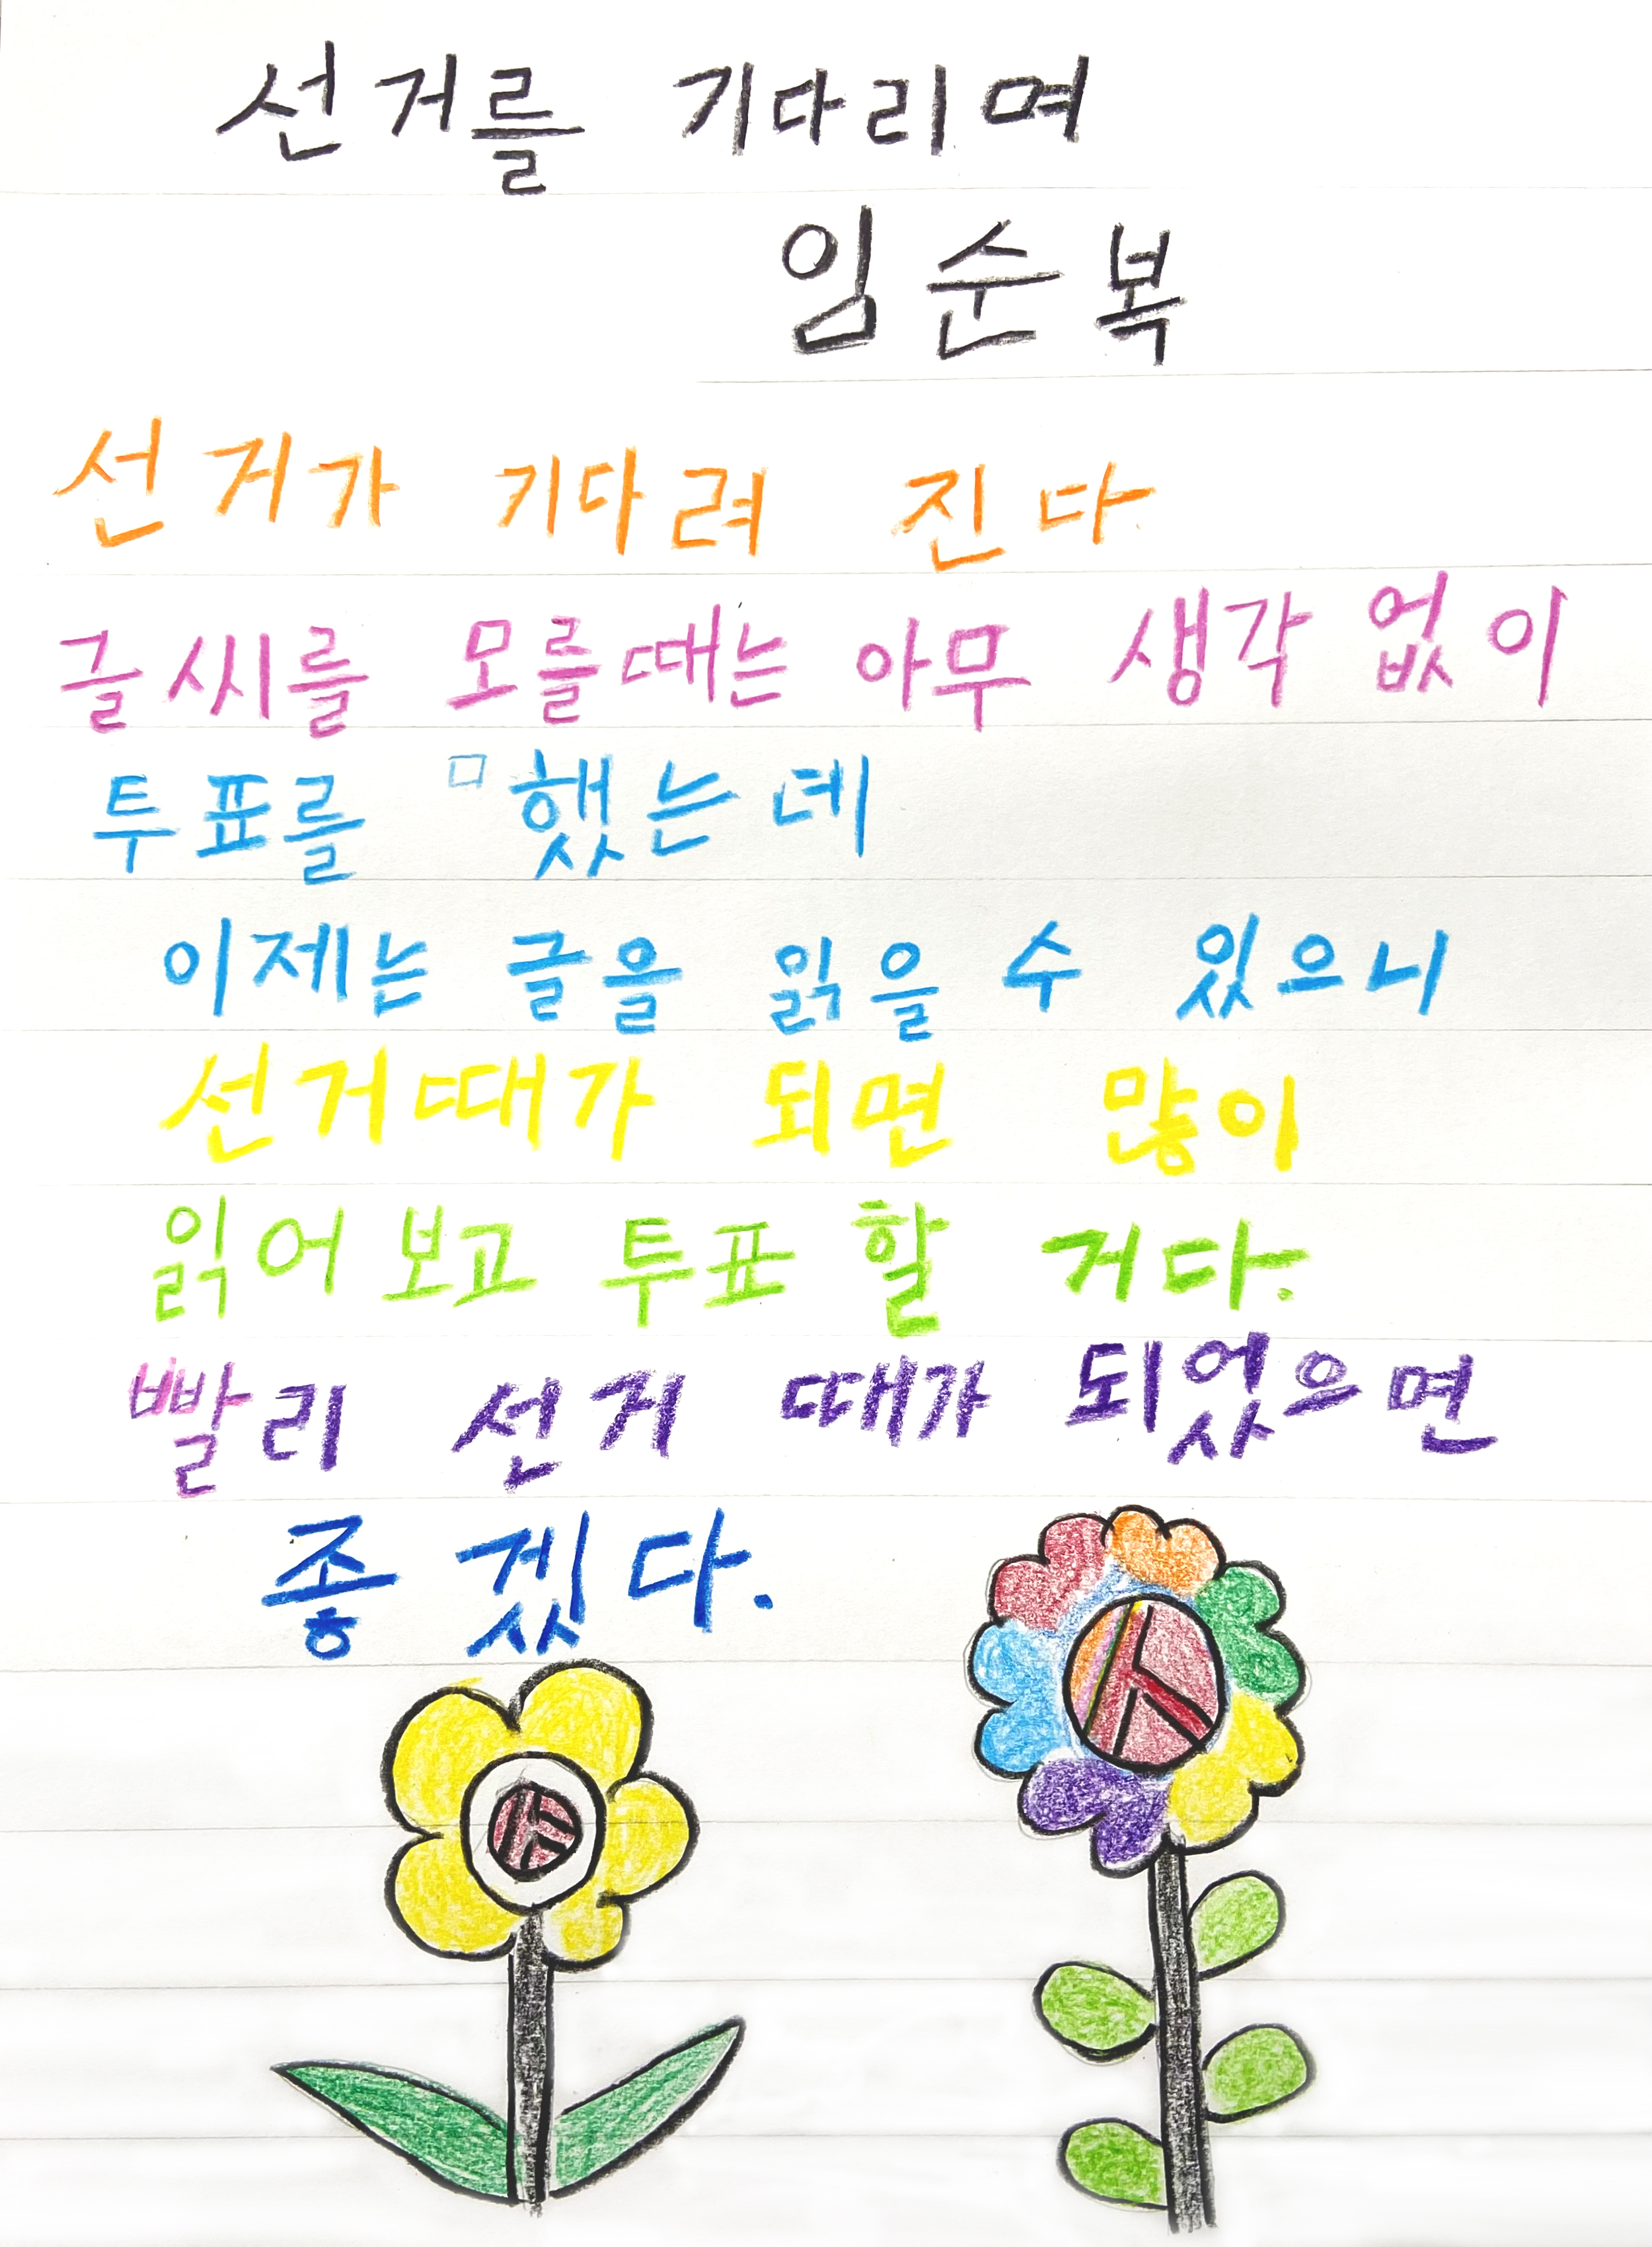 선거를 기다리며
임순복
선거가 기다려 진다.
글씨를 모를때는 아무 생각 없이
투표를 ㅁ했는데
이제는 글을 읽을 수 있으니
선거때가 되면 많이
읽어보고 투표 할 거다.
빨리 선거 때가 되었으면
좋겠다.